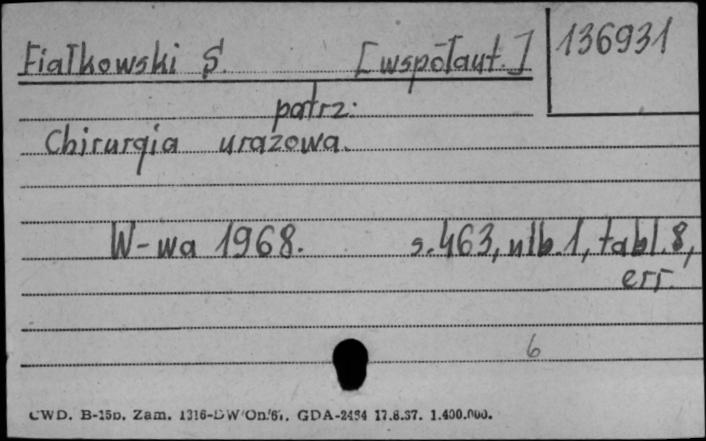 Fiałkowski S. [współaut.]
136931
patrz:
Chirurgia urazowa.
W-wa 1968. s. 463, nlb. 1, tabl. 8,
err.
6
CWD. B-15b. Zam. 1316- GDA-2434 17.8.57. 1.400.000.